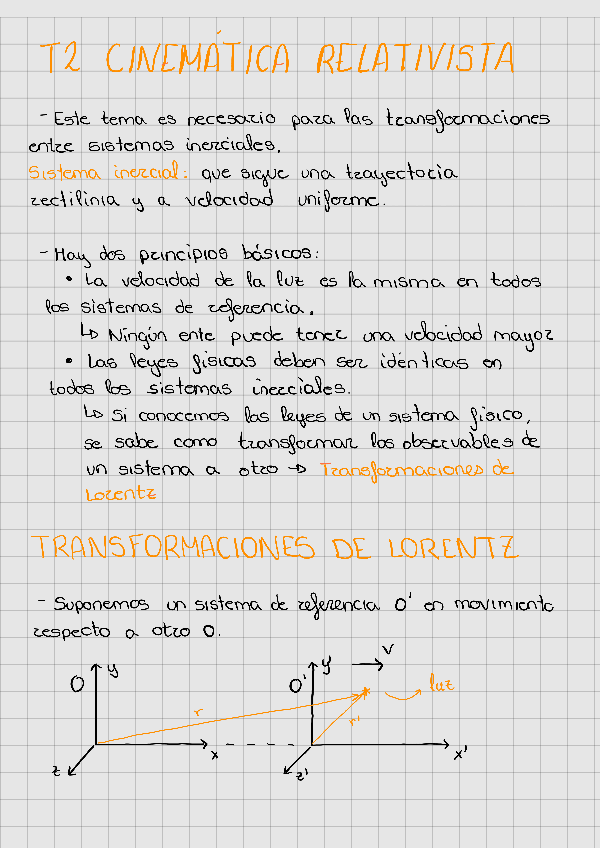 T2 CINEMÁTICA RELATIVISTA
- Este tema es necesario para las transformaciones
entre sistemas inerciales.
Sistema inercial: que sigue una trayectocia
rectilinia y a velocidad uniforme.
- Hay dos principios básicos:
• La velocidad de la luz es la misma en todos
los sistemas de referencia.
↳ Ningún ente puede tener una velocidad mayor
• Las leyes físicas deben ser idénticas en
todos los sistemas inerciales.
↳ Si conocemos las leyes de un sistema físico,
se sabe como transformar los observables de
un sistema a otro → Transformaciones de
Lorentz
TRANSFORMACIONES DE LORENTZ
- Suponemos un sistema de referencia O' en movimiento
respecto a otro O.
O y O' y v
r r' luz
x x'
z z'